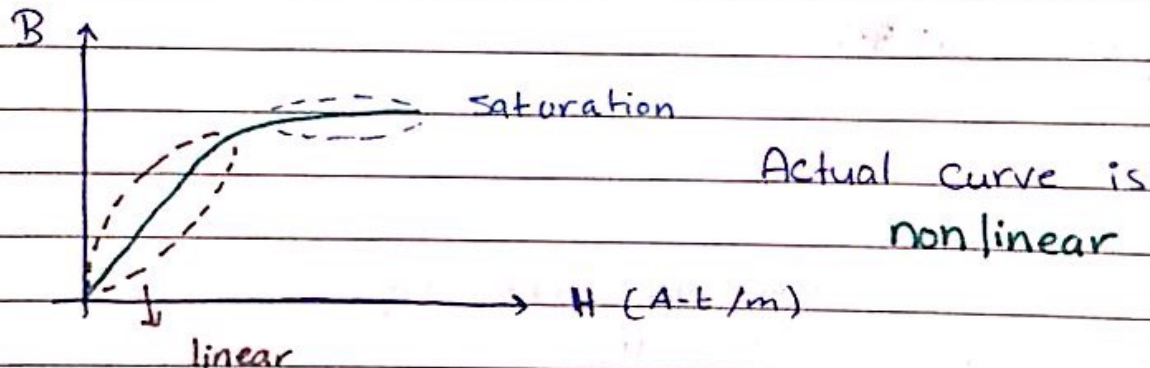 B
saturation
Actual curve is
nonlinear
H (A-t/m)
linear